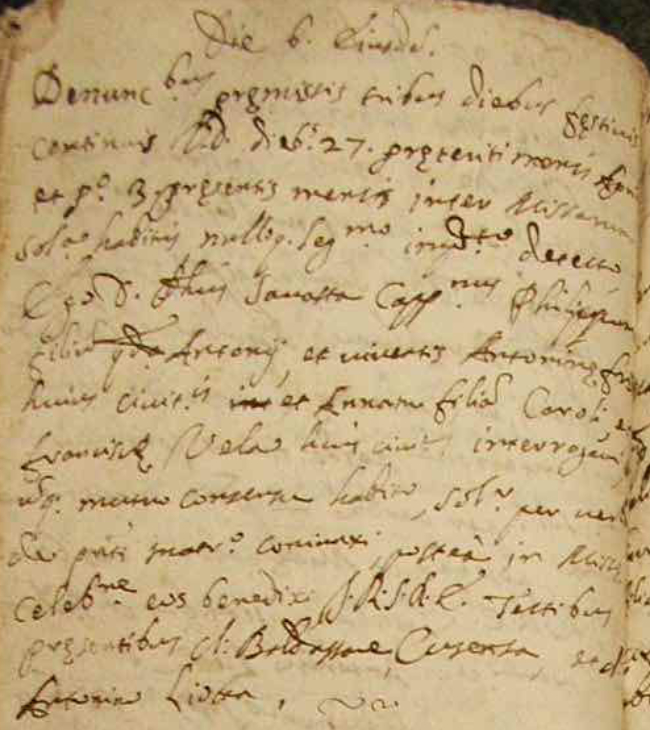 Die 6. Eiusd.
Denunc.bus premissis tribus diebus festivis
continuis dieb. 27. preteriti mensis
et p.o 3 presentis mensis inter Missarum
sol.a habitis nulloq. leg.mo imp.to detecto
Ego D. Savotta Capp.nus Philippum
filiu qda Antonij, et viventis Antonine
huius civit.is et Annam filia Caroli et
Francisce Vela huius civit. interrogavi
utq. mutuo consensu habito, sol.r per verba
de pnti matr.o coniunxi, postea in Missae
celeb.ne eos benedixi J.R.S.R.E. Testibus
presentibus cl: Baldassare Cusenza et cl.
Antonino Liotta,